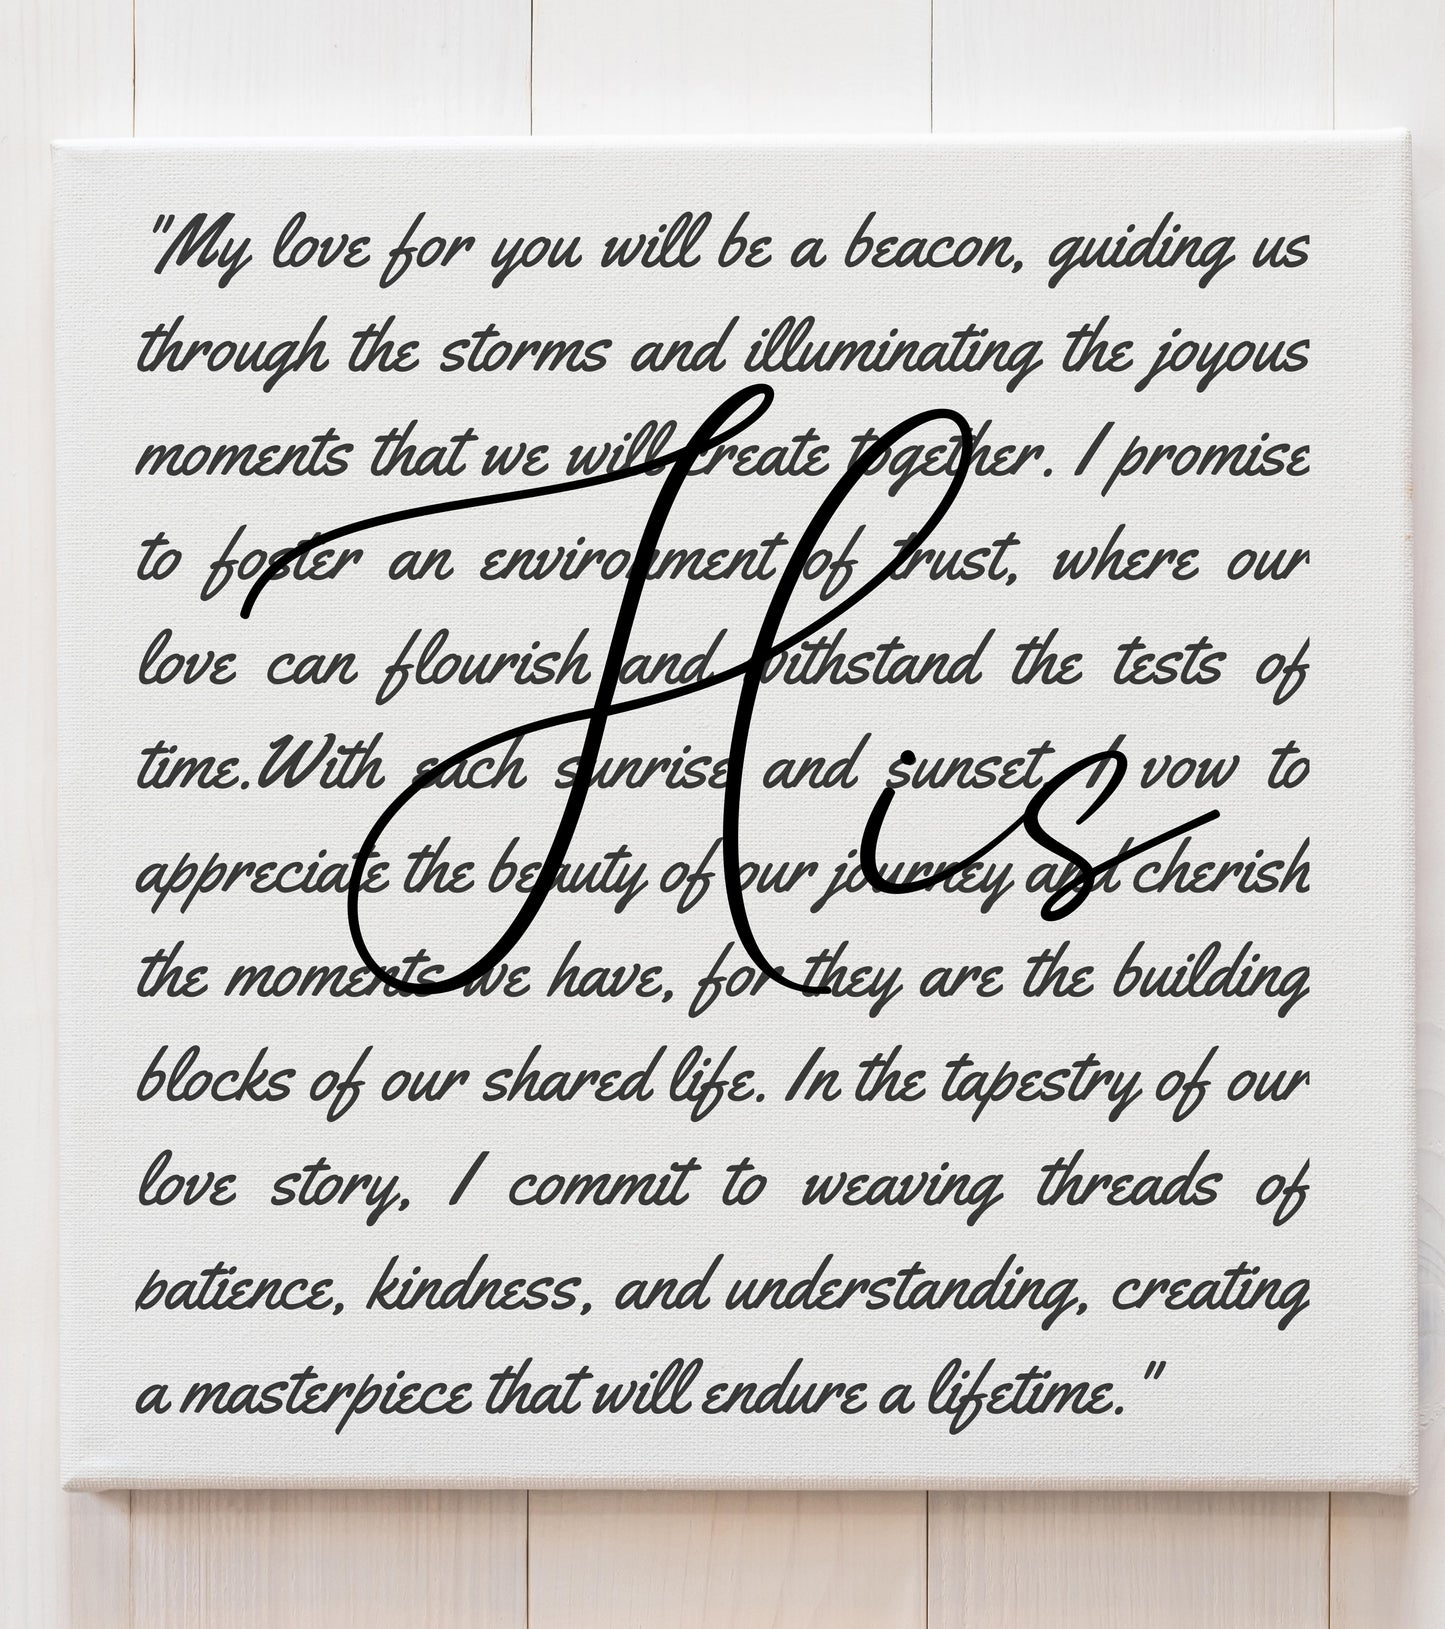 "My love for you will be a beacon, guiding us
through the storms and illuminating the joyous
moments that we will create together. I promise
to foster an environment of trust, where our
love can flourish and withstand the tests of
time.With each sunrise and sunset, I vow to
appreciate the beauty of our journey and cherish
the moments we have, for they are the building
blocks of our shared life. In the tapestry of our
love story, I commit to weaving threads of
patience, kindness, and understanding, creating
a masterpiece that will endure a lifetime."
His